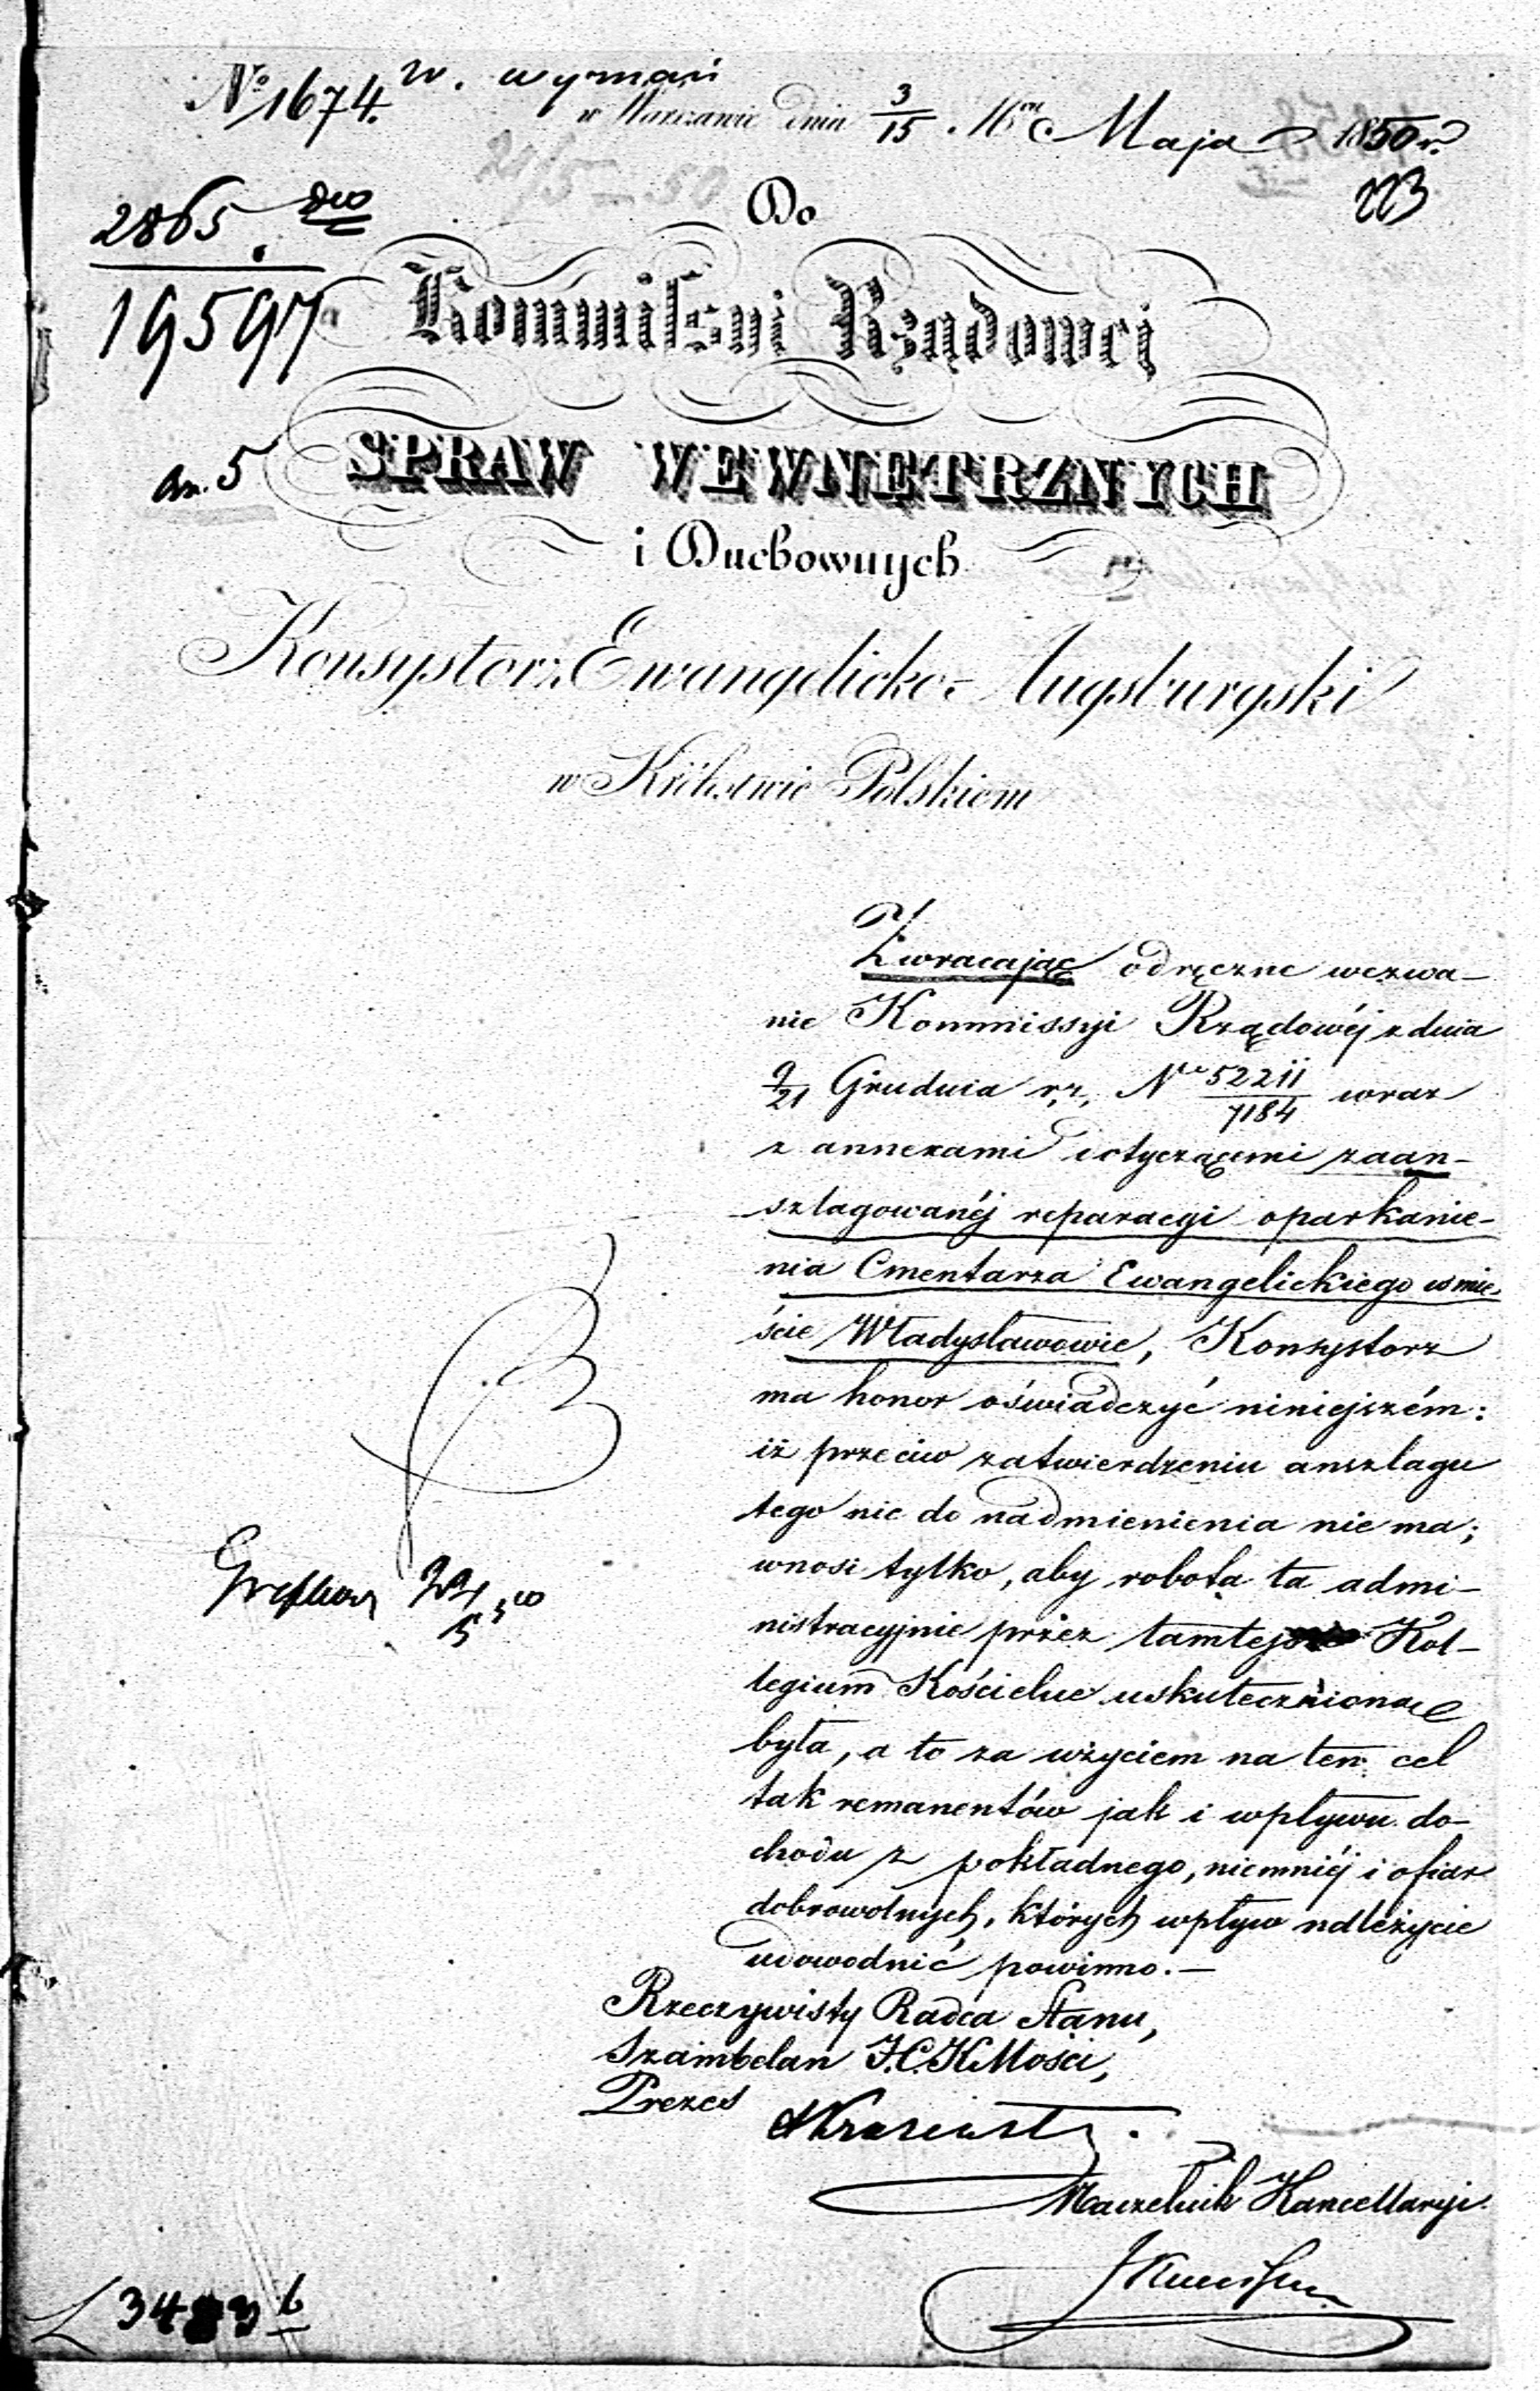 No 1674. w. wymań
w Warszawie dnia 3/15 Maja 1850 r.
223
2865.
19597
Do
Kommissyi Rządowej
an. 5
SPRAW WEWNETRZNYCH
i Duchownych
Konsystorz Ewangelicko-Augsburgski
w Królestwie Polskiem
Zwracając odręczne wezwa-
nie Kommissyi Rządowéj z dnia
9/21 Grudnia r. z. No 52211/7184 wraz
z annexami dotyczącemi zaan-
szlagowanéj reparacyi oparkanie-
nia Cmentarza Ewangelickiego w mie-
ście Władysławowie, Konsystorz
ma honor oświadczyć niniejszém:
iż przeciw zatwierdzeniu anszlagu
tego nic do nadmienienia nie ma;
wnosi tylko, aby robota ta admi-
nistracyjnie przez tamtejsze Kol-
legium Kościelne uskutecznioną
była, a to za użyciem na ten cel
tak remanentów jak i wpływu do-
chodu z pokładnego, niemniéj i ofiar
dobrowolnych, których wpływ należycie
udowodnić powinno.—
Rzeczywisty Radca Stanu,
Szambelan J.C.K Mości,
Prezes
Naczelnik Kancellaryi